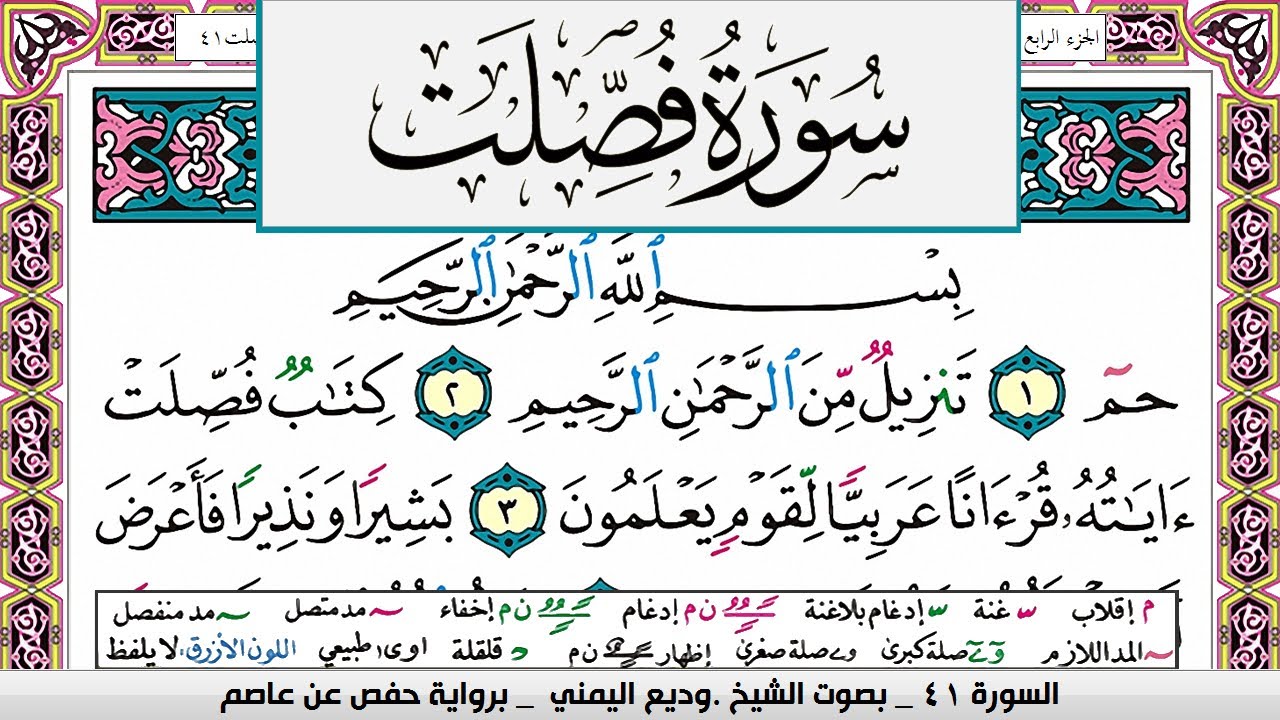 الجزء الرابع
سُورَةُ فُصِّلَت
بِسْمِ ٱللَّهِ ٱلرَّحْمَٰنِ ٱلرَّحِيمِ
حمٓ ١ تَنزِيلٌ مِّنَ ٱلرَّحْمَٰنِ ٱلرَّحِيمِ ٢ كِتَٰبٌ فُصِّلَتْ
ءَايَٰتُهُۥ قُرْءَانًا عَرَبِيًّا لِّقَوْمٍ يَعْلَمُونَ ٣ بَشِيرًا وَنَذِيرًا فَأَعْرَضَ
م إقلاب غنة إدغام بلاغنة ن م إدغام ن م إخفاء مد متصل مد منفصل
المد اللازم صلة كبرى صلة صغرى إظهار ن م قلقلة اوى طبيعي اللون الأزرق: لا يلفظ
السورة ٤١ _ بصوت الشيخ .وديع اليمني _ برواية حفص عن عاصم